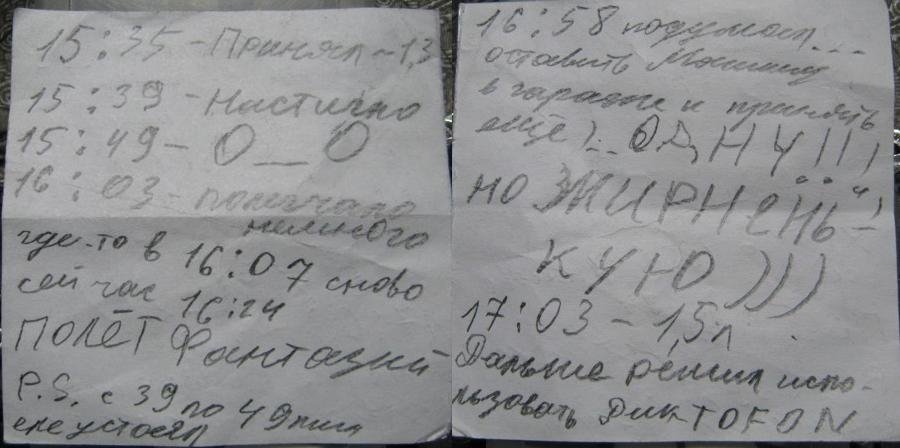 15:35 - Принял ~ 1,3
15:39 - Частично
15:49 - O__O
16:03 - полегчало
немного
где-то в 16:07 снова
сейчас 16:24
ПОЛЁТ Фантазий
P.S. с 39 по 49 мин
еле устоял
16:58 подумал...
оставить Машину
в гараже и принять
ещё )... ОДНУ!!!
НО ЖИРНЕНЬ-
КУЮ )))
17:03 - 1,5л
Дальше решил испо-
льзовать ДикTOFON